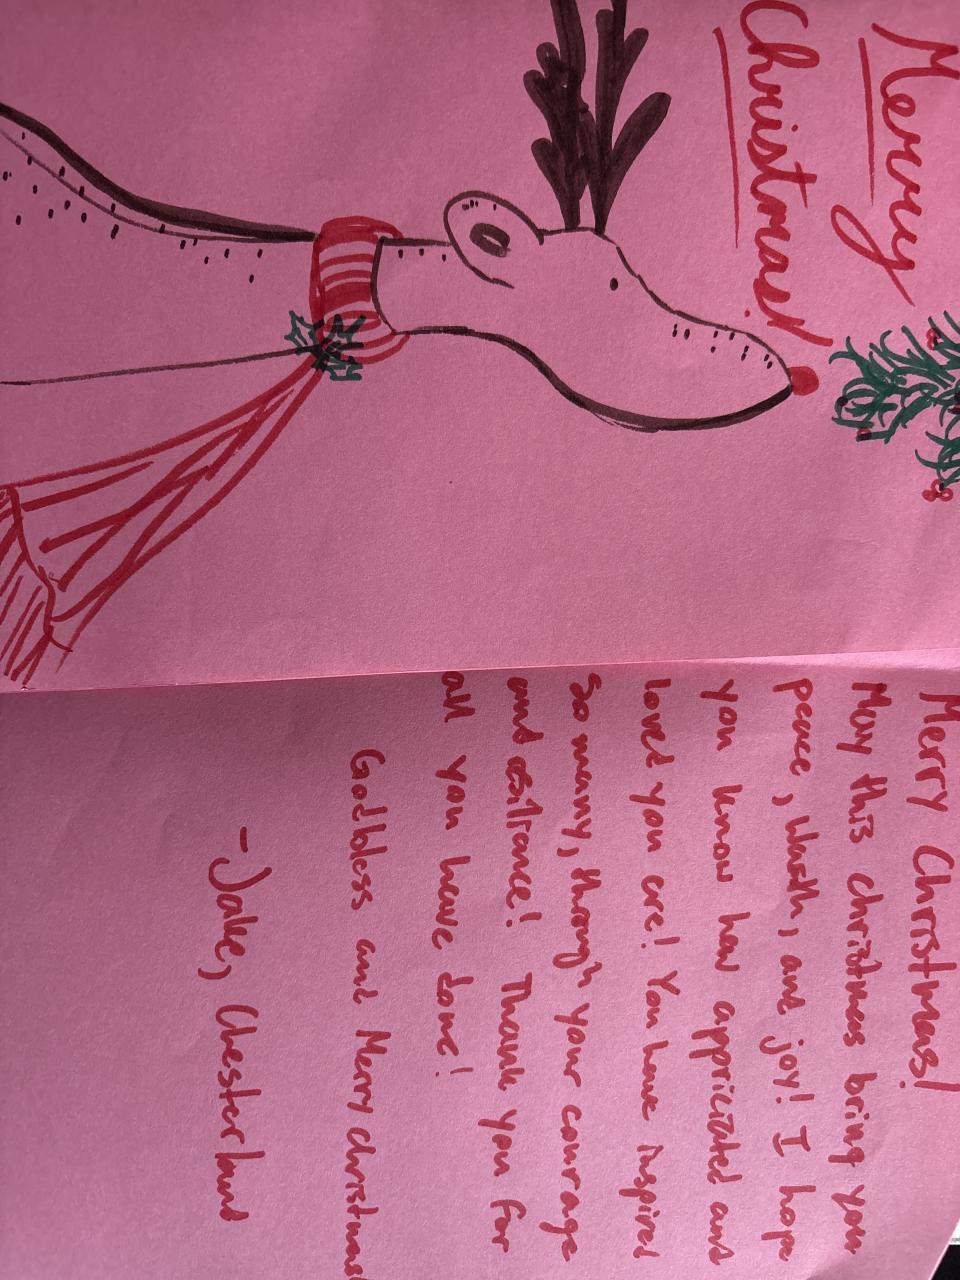 Merry
Christmas!
Merry Christmas!
May this christmas bring you
peace, warth, and joy! I hope
you know how appriciated and
loved you are! You have inspired
so many, through your courage
and esiliance! Thank you for
all you have done!
Godbless and Merry christmas!
-Jake, Chesterland